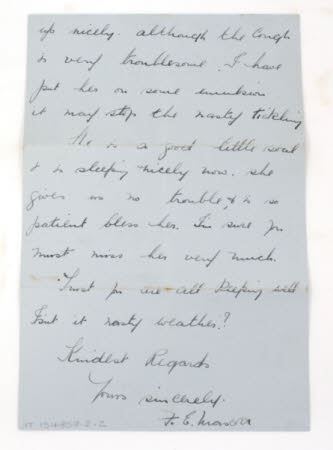 up nicely. although the Cough
is very troublesome. I have
put her on some emulsion
it may stop the nasty tickling
He is a good little soul
& is sleeping nicely now. she
gives us no trouble, & is so
patient bless her. I'm sure you
must miss her very much.
Trust you are all keeping well
Isn't it nasty weather?
Kindest Regards
Yours sincerely.
F. E. Mason